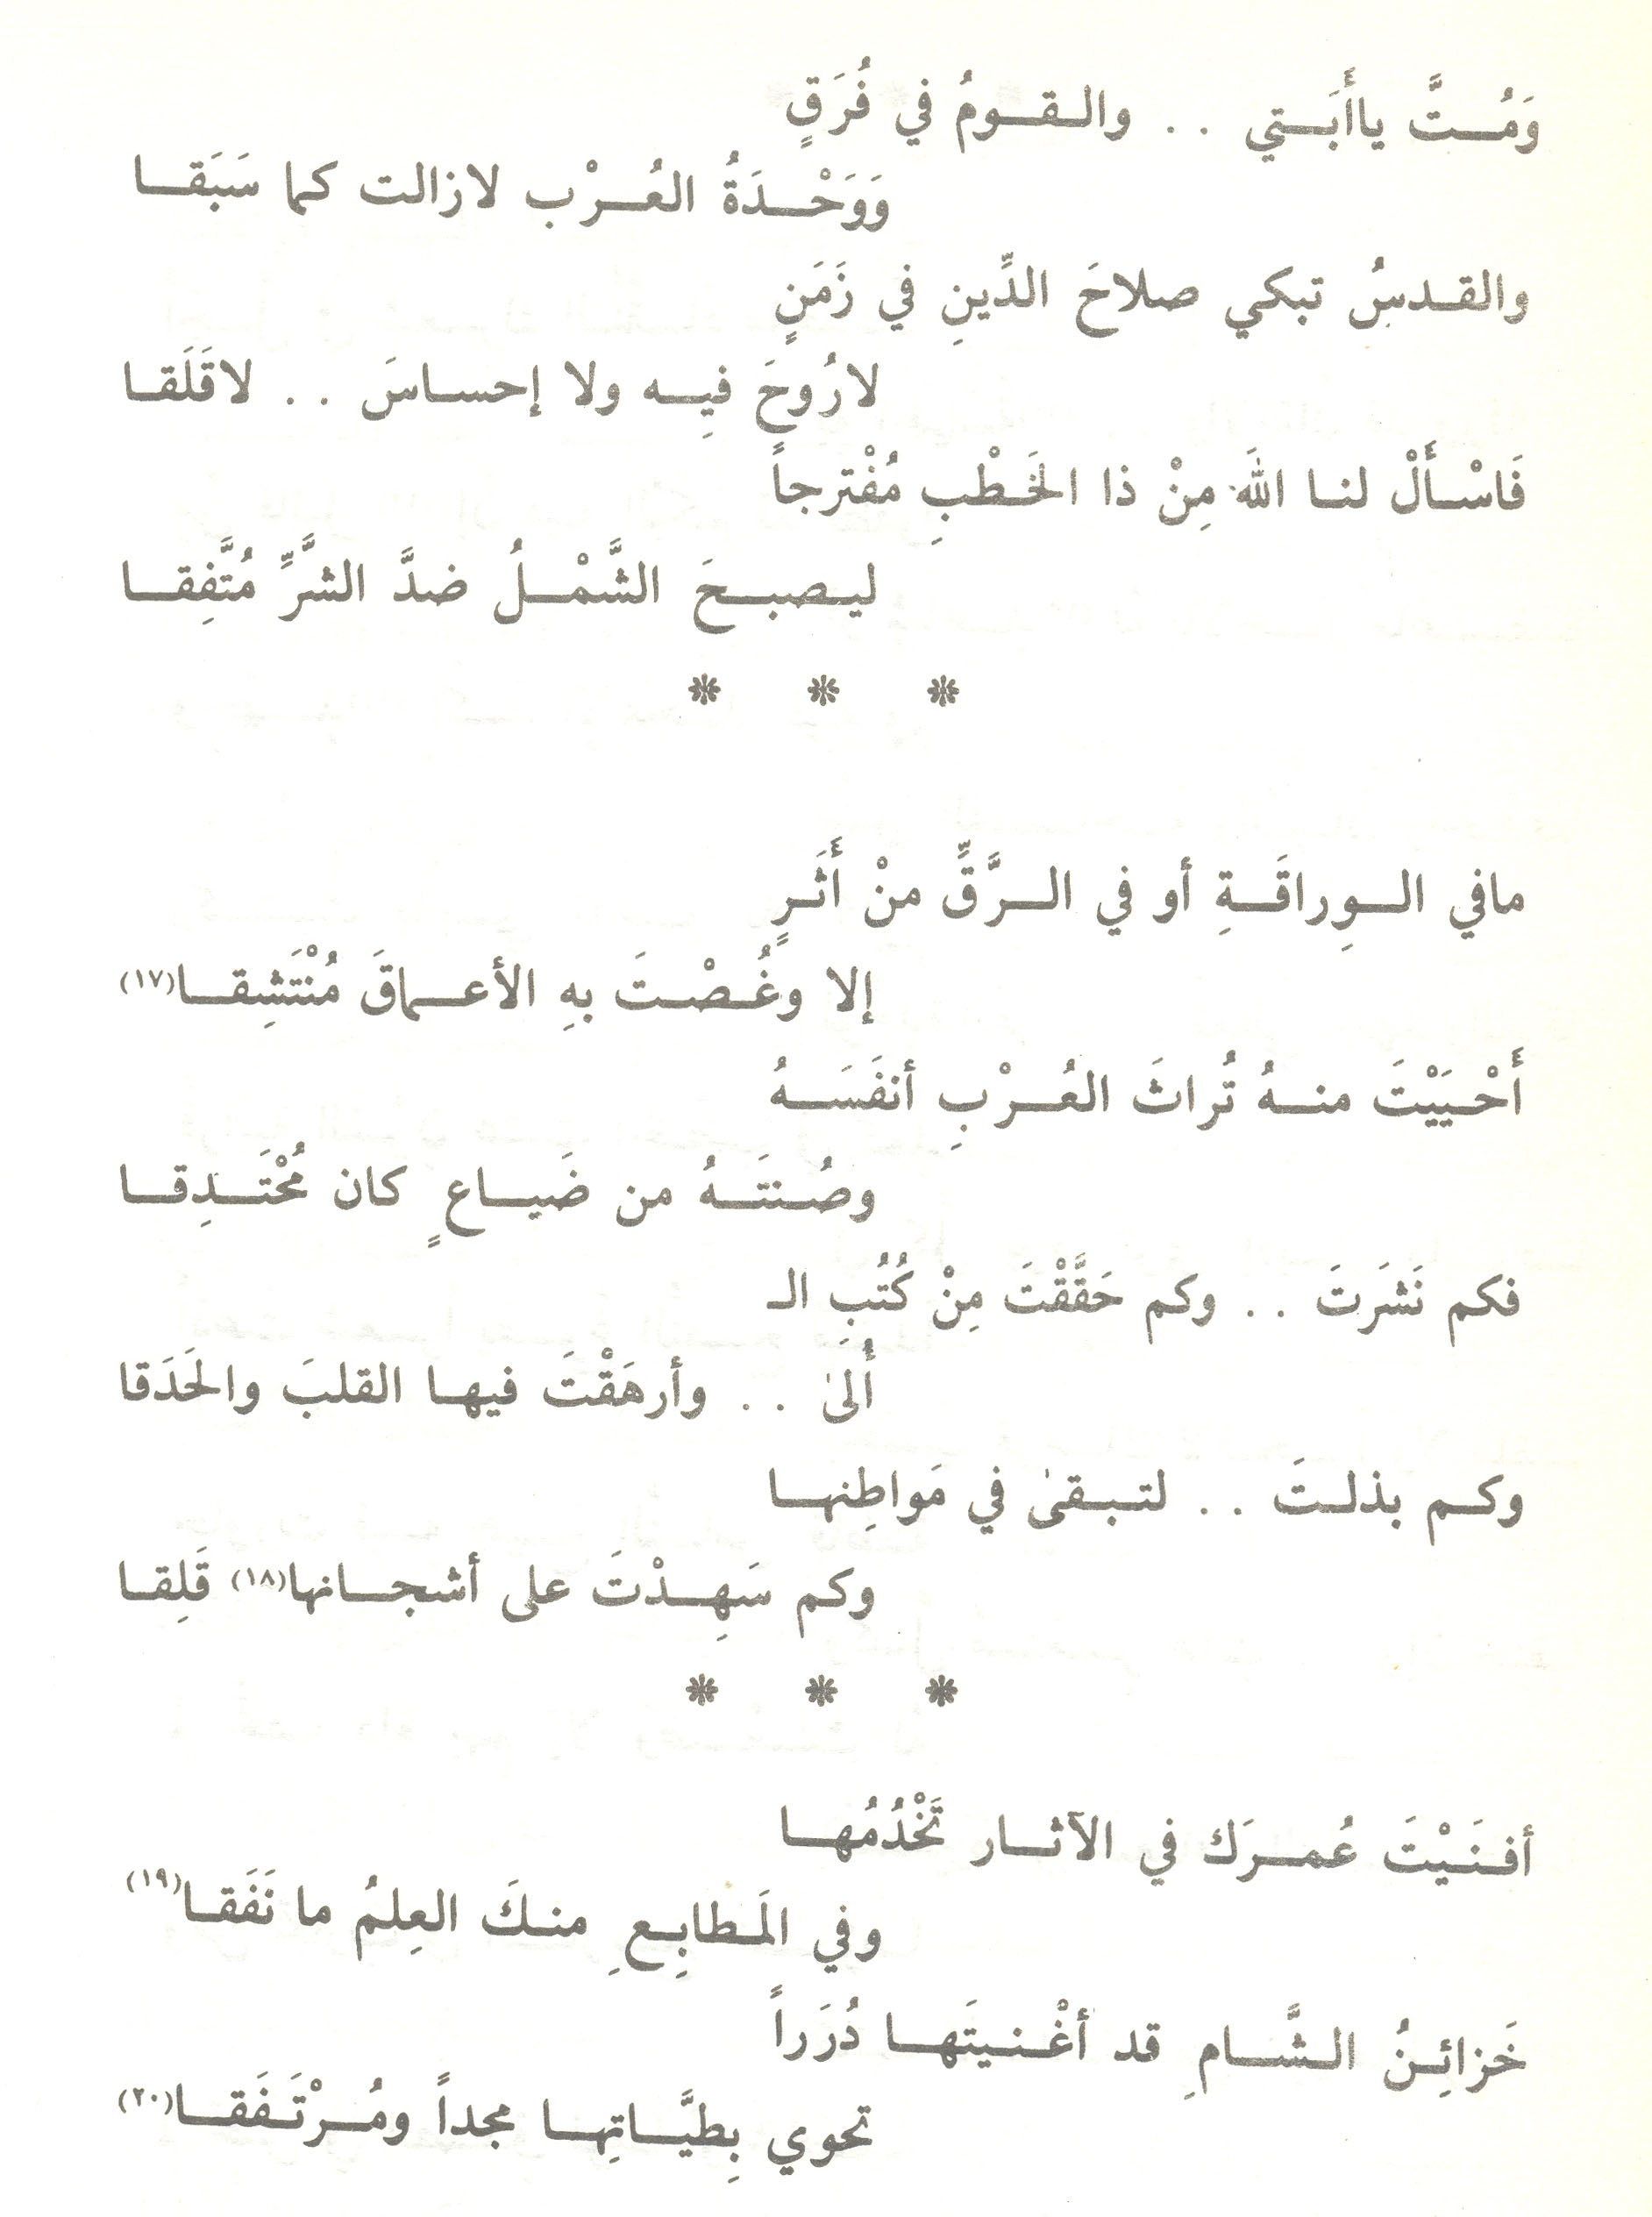 وَمُـتَّ ياأَبَـتي . . والـقـومُ في فُرَقٍ
وَوَحْـدَةُ العُـرْب لازالت كما سَبَقـا
والقـدسُ تبكي صلاحَ الدِّينِ في زَمَنٍ
لارُوحَ فيِـه ولا إحسـاسَ . . لاقَلَقـا
فَاسْـأَلْ لنـا اللهَ مِنْ ذا الخَـطْبِ مُفْترجاً
ليـصبـحَ الشَّمْـلُ ضدَّ الشرَّ مُتَّفِقـا
* * *
مافي الـوِراقَـةِ أو في الـرَّقِّ منْ أَثَـرٍ
إلا وغُـصْـتَ بهِ الأعـماقَ مُنْتَشِقـا(١٧)
أَحْـيَيْتَ منـهُ تُراثَ العُـرْبِ أنفَسَـهُ
وصُـنتَـهُ من ضَيـاعٍ كان مُحْتَـدِقـا
فكم نَشَرَتَ . . وكم حَقَّقْتَ مِنْ كُتُبِ الـ
أُلىٰ . . وأرهَقْتَ فيهـا القلبَ والحَدَقا
وكـم بذلـتَ . . لتـبـقىٰ في مَواطِنهـا
وكم سَهِـدْتَ على أشجـانها(١٨) قَلِقـا
* * *
أفـنَـيْتَ عُمـرَك في الآثـار تَخْدُمُهـا
وفي المَـطابِـعِ منـكَ العِلمُ ما نَفَقـا(١٩)
خَزائِـنُ الـشَّـامِ قد أغْـنـيتَهـا دُرَراً
تحوي بِطيَّـاتِهـا مجداً ومُـرْتَـفَقـا(٢٠)